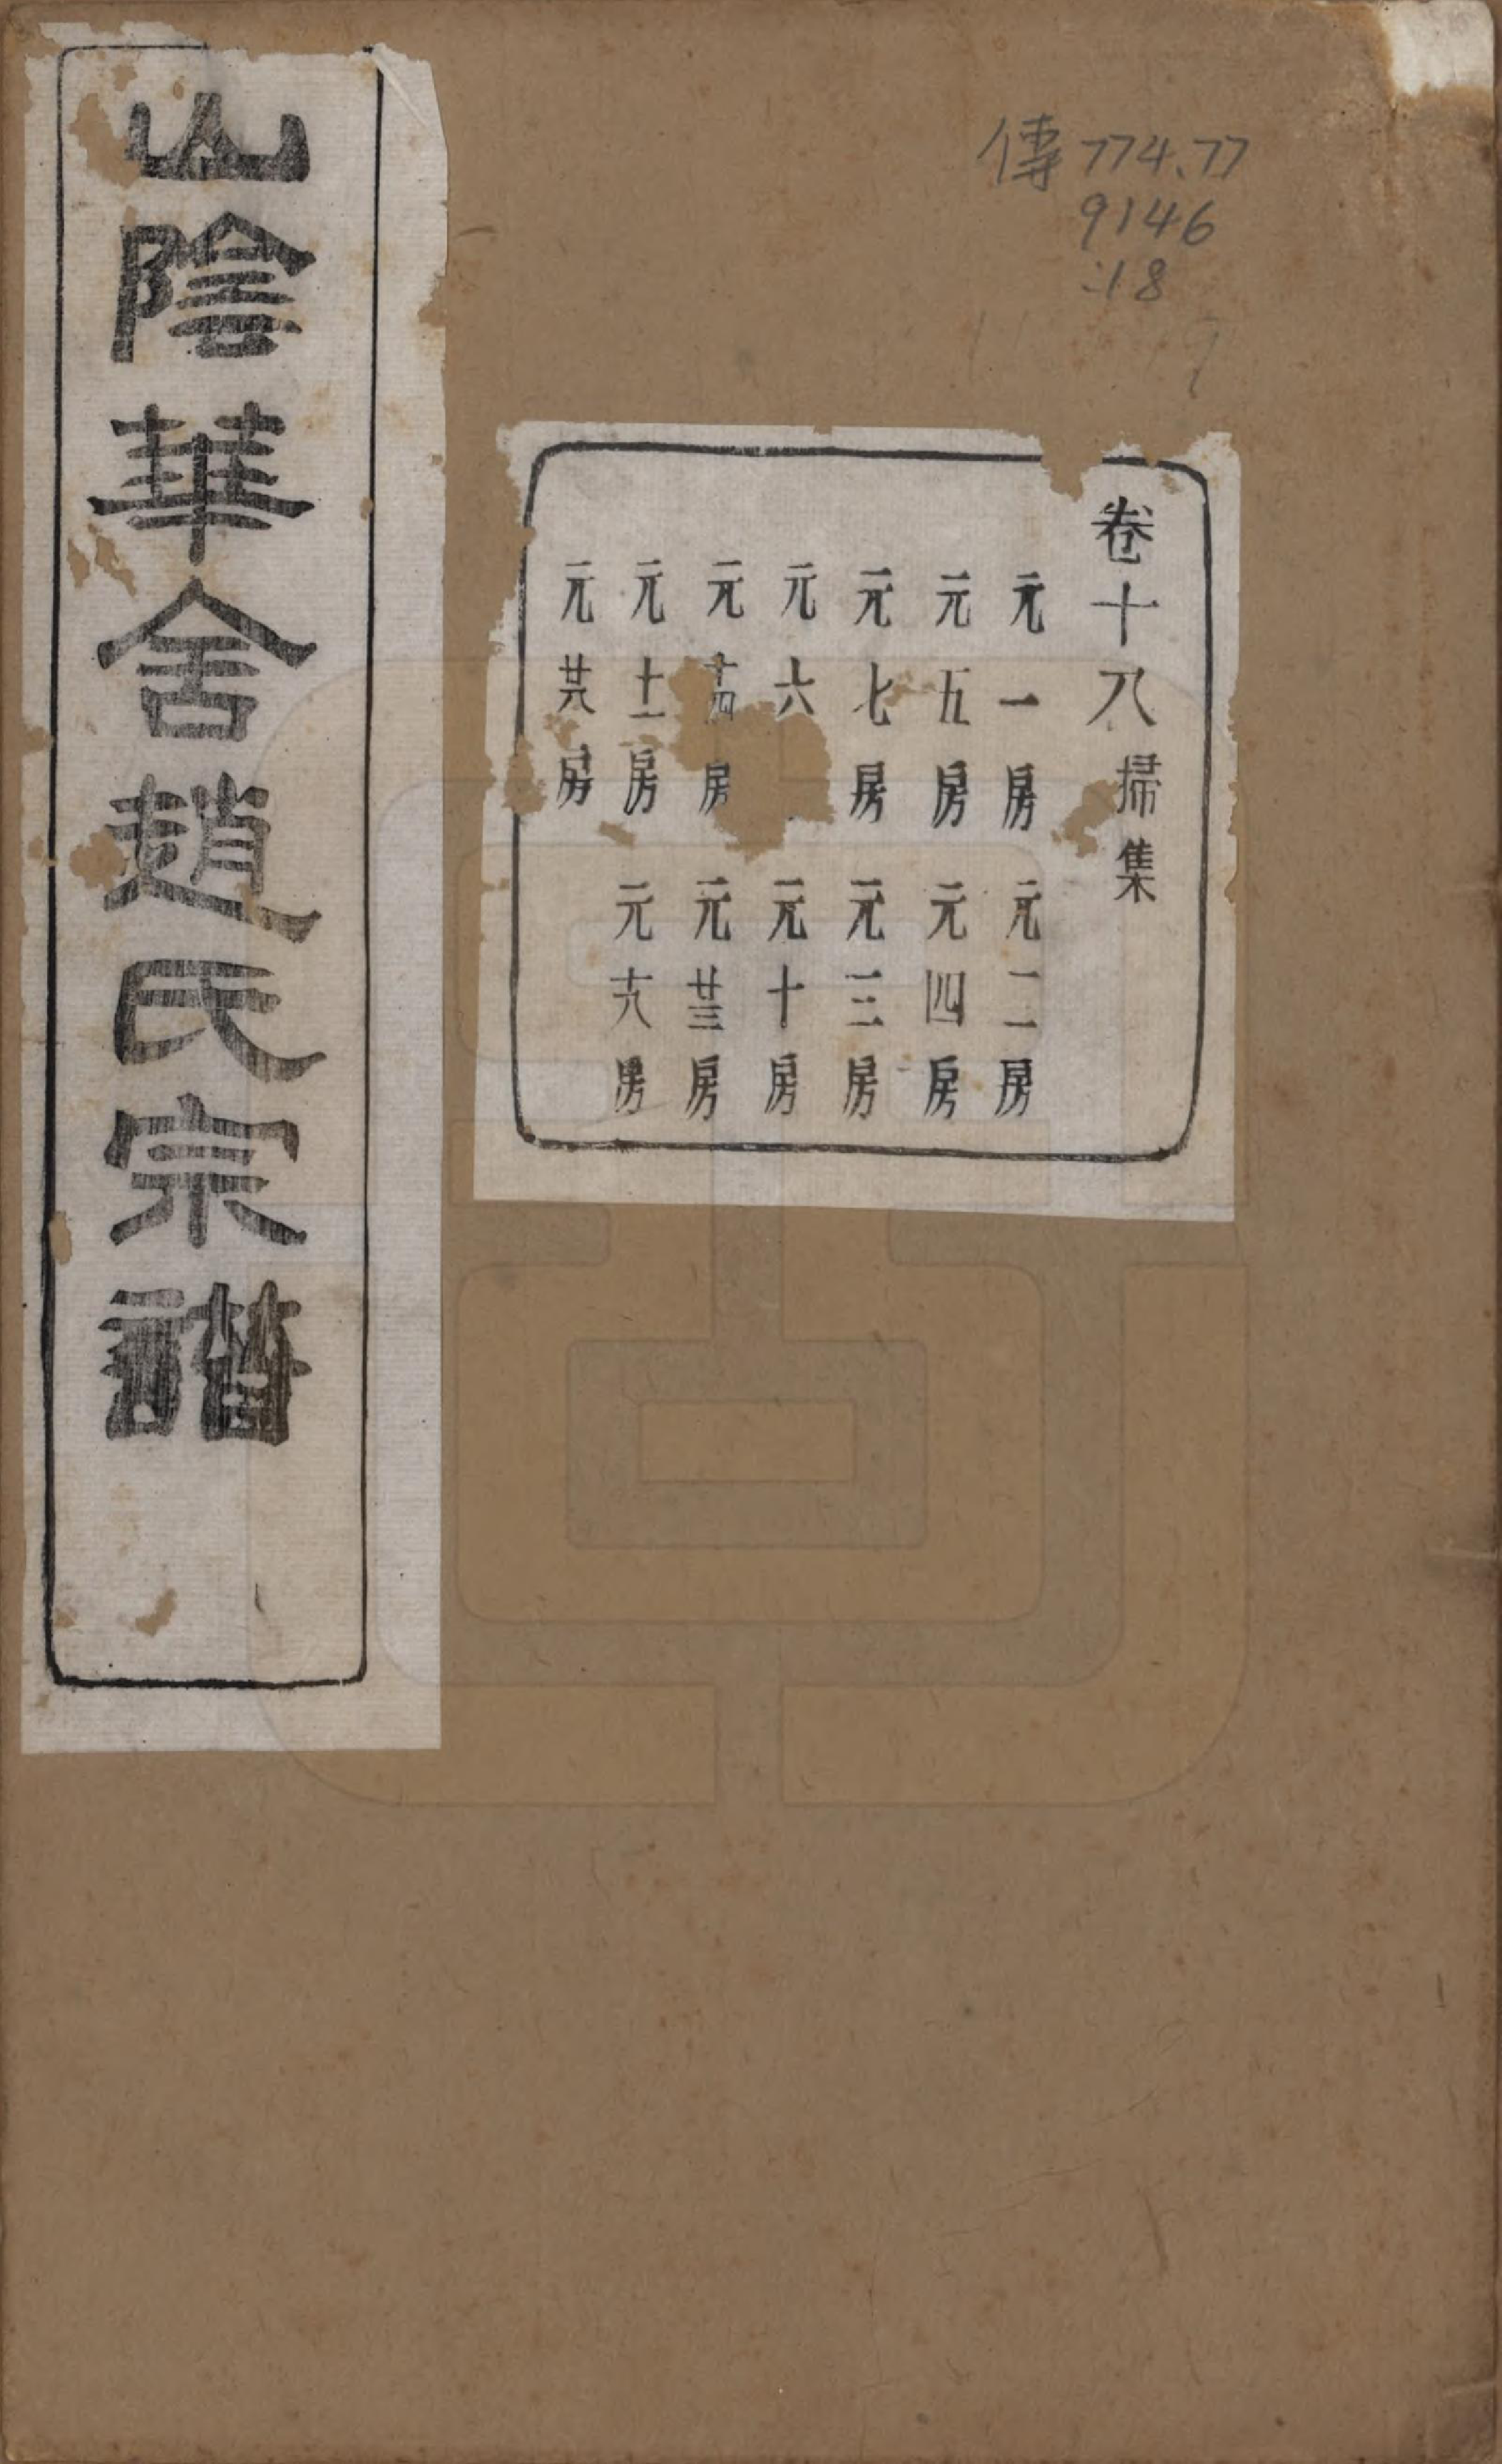 山陰華舍趙氏宗譜
傳 774.77
9146
:18
卷十八 掃集
元一房 元二房
元五房 元四房
元七房 元三房
元六 元十房
元 房 元廿三房
元十一房 元十八房
元廿八房